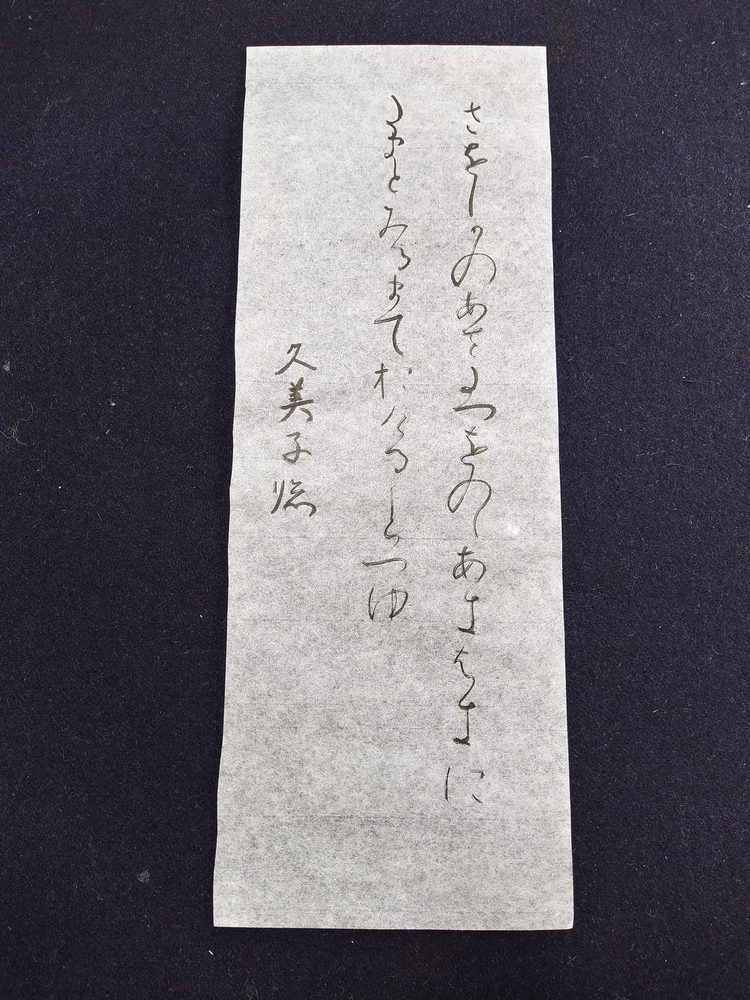 さをしかのあさたつをのゝあきはきに
たまとみるまておけるしらつゆ
久美子臨